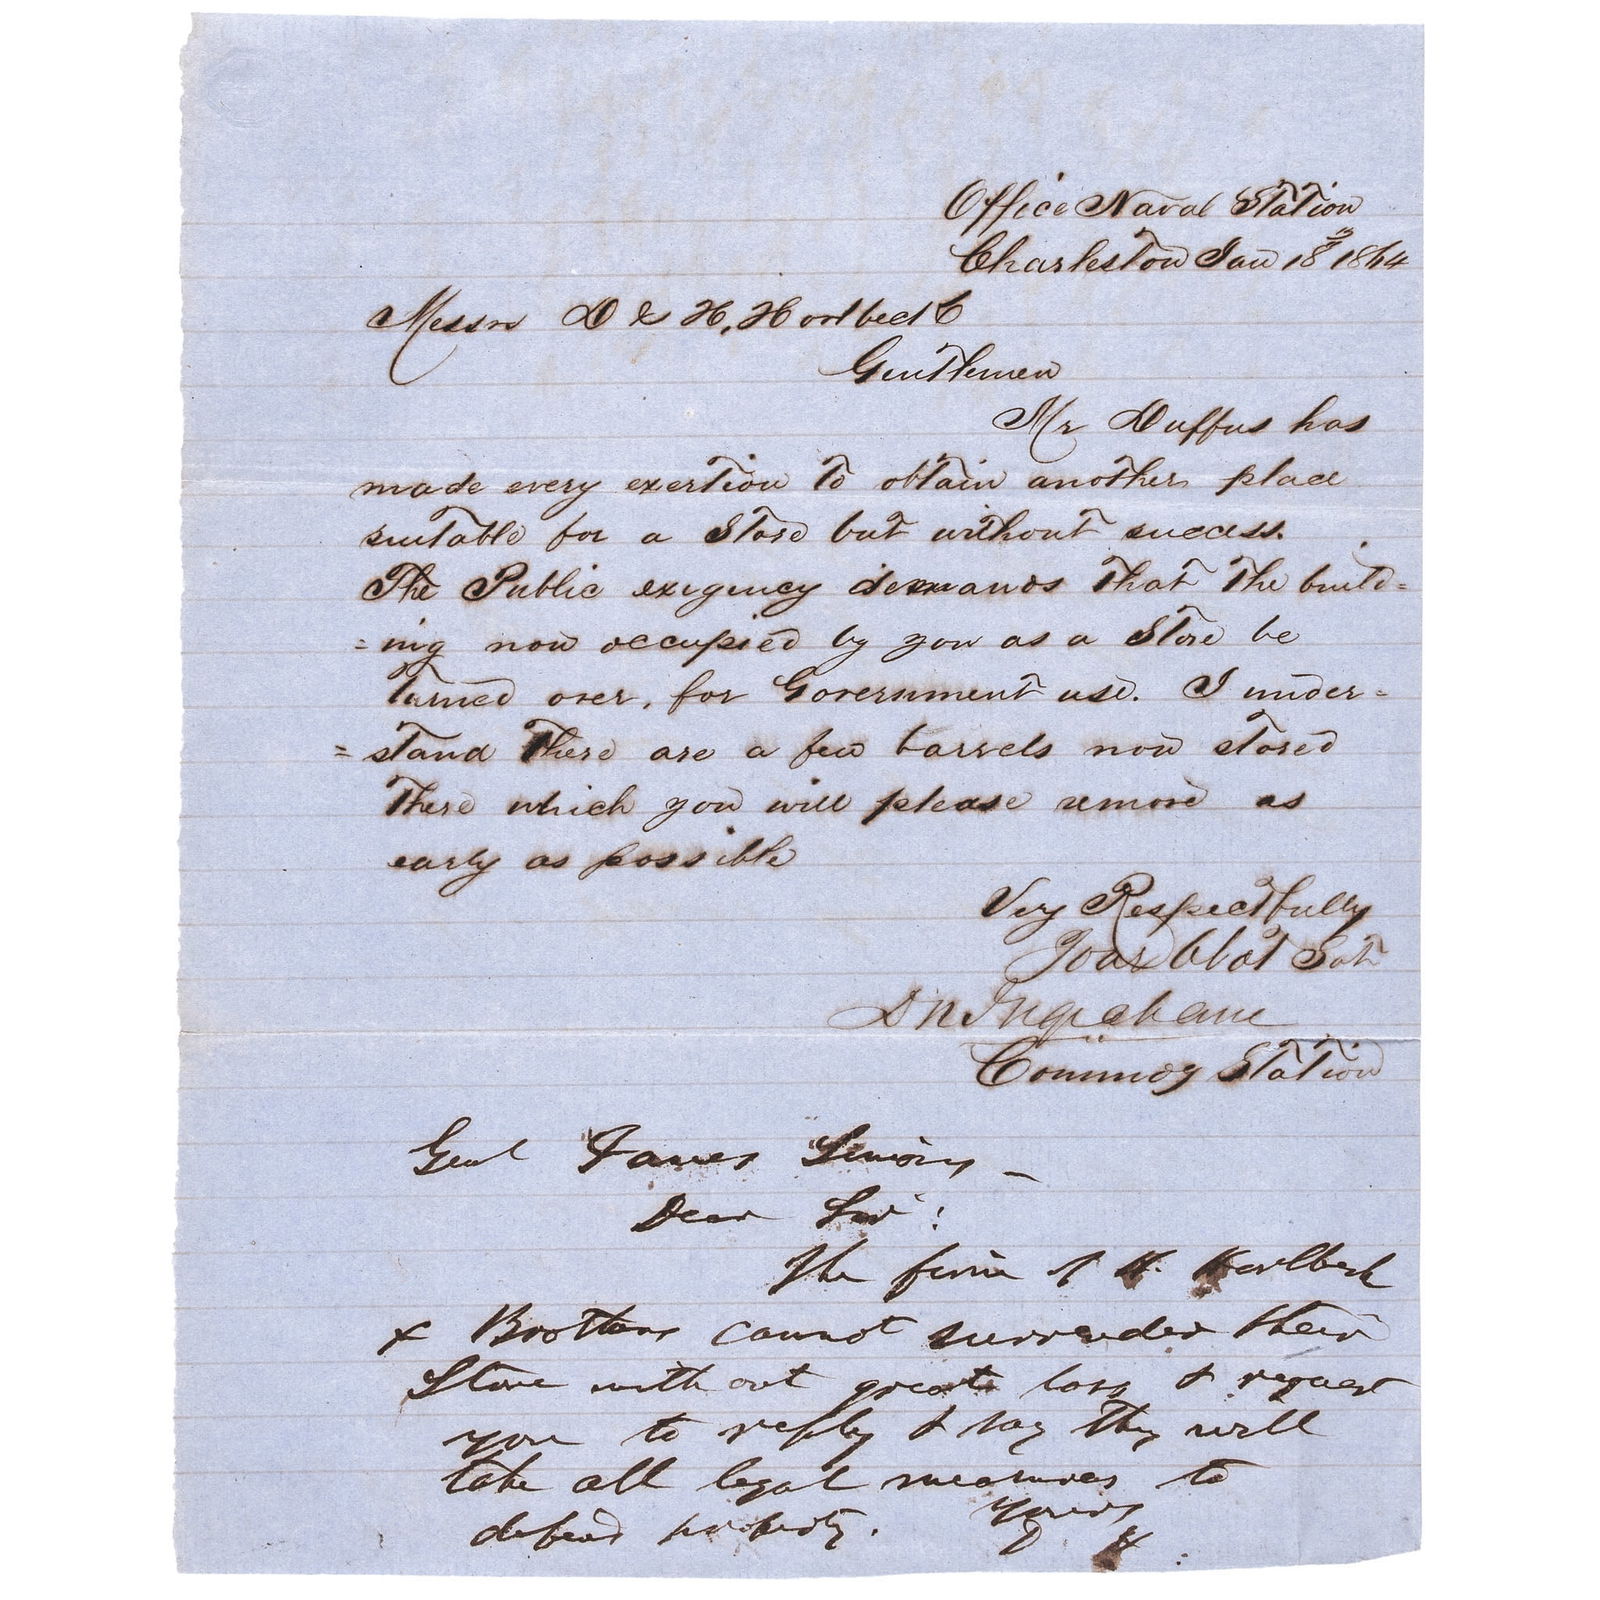 Office Naval Station
Charleston Jan 18th 1864
Messrs D & H. Horlbeck
Gentlemen
Mr Duffus has
made every exertion to obtain another place
suitable for a Store but without success.
The Public exigency demands that the build=
=ing now occupied by you as a Store be
turned over, for Government use. I under=
=stand there are a few barrels now stored
there which you will please remove as
early as possible
Very Respectfully
Your Obdt Svt
D N Ingraham
Commdg Station
Genl James Simons –
Dear Sir :
The firm of H. Horlbeck
& Brothers cannot surrender their
Store with out great loss & request
you to reply & say they will
take all legal measures to
defend property. Yours
D H